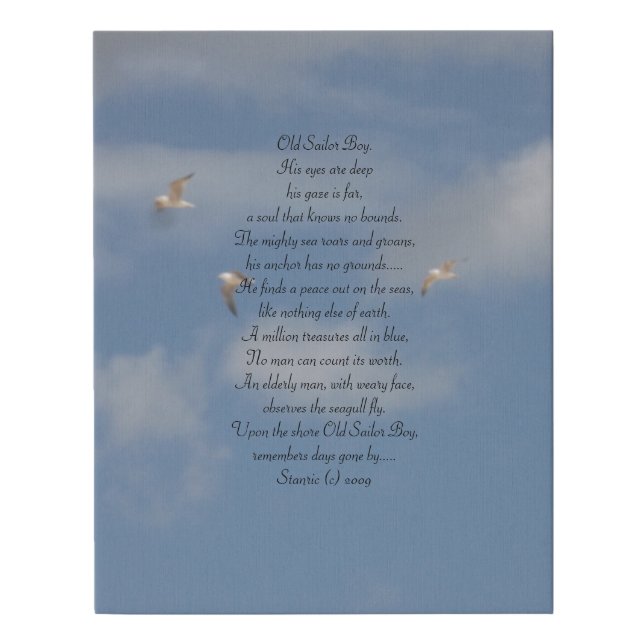 Old Sailor Boy.
His eyes are deep
his gaze is far,
a soul that knows no bounds.
The mighty sea roars and groans,
his anchor has no grounds.....
He finds a peace out on the seas,
like nothing else of earth.
A million treasures all in blue,
No man can count its worth.
An elderly man, with weary face,
observes the seagull fly.
Upon the shore Old Sailor Boy,
remembers days gone by.....
Stanric (c) 2009